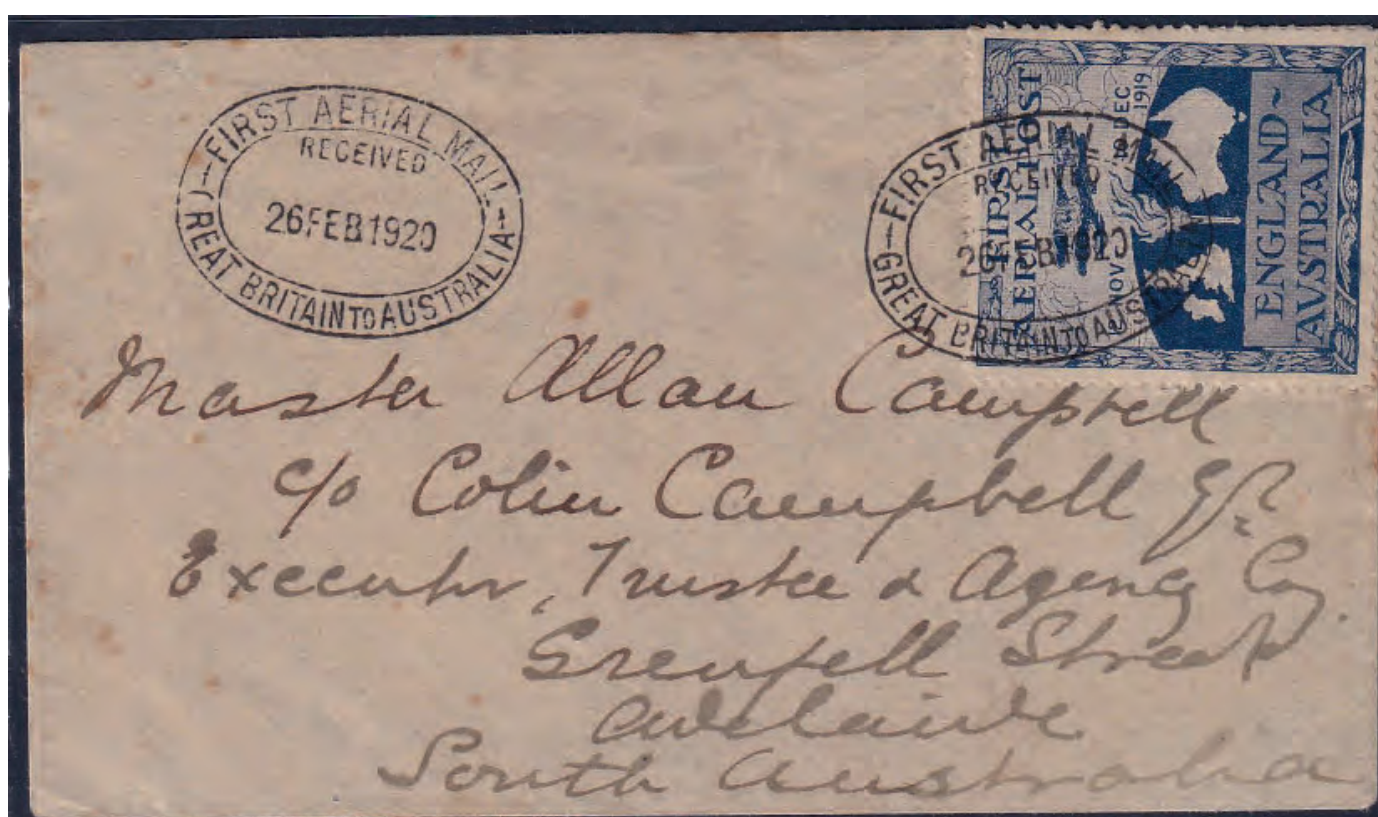 FIRST AERIAL MAIL
RECEIVED
26 FEB 1920
GREAT BRITAIN TO AUSTRALIA
FIRST AERIAL MAIL
RECEIVED
26 FEB 1920
GREAT BRITAIN TO AUSTRALIA
FIRST
AERIAL POST
NOV
DEC
1919
ENGLAND~
AVSTRALIA
Master Allan Campbell
c/o Colin Campbell Esqr.
Executor, Trustee & Agency Coy.
Grenfell Street
Adelaide
South Australia